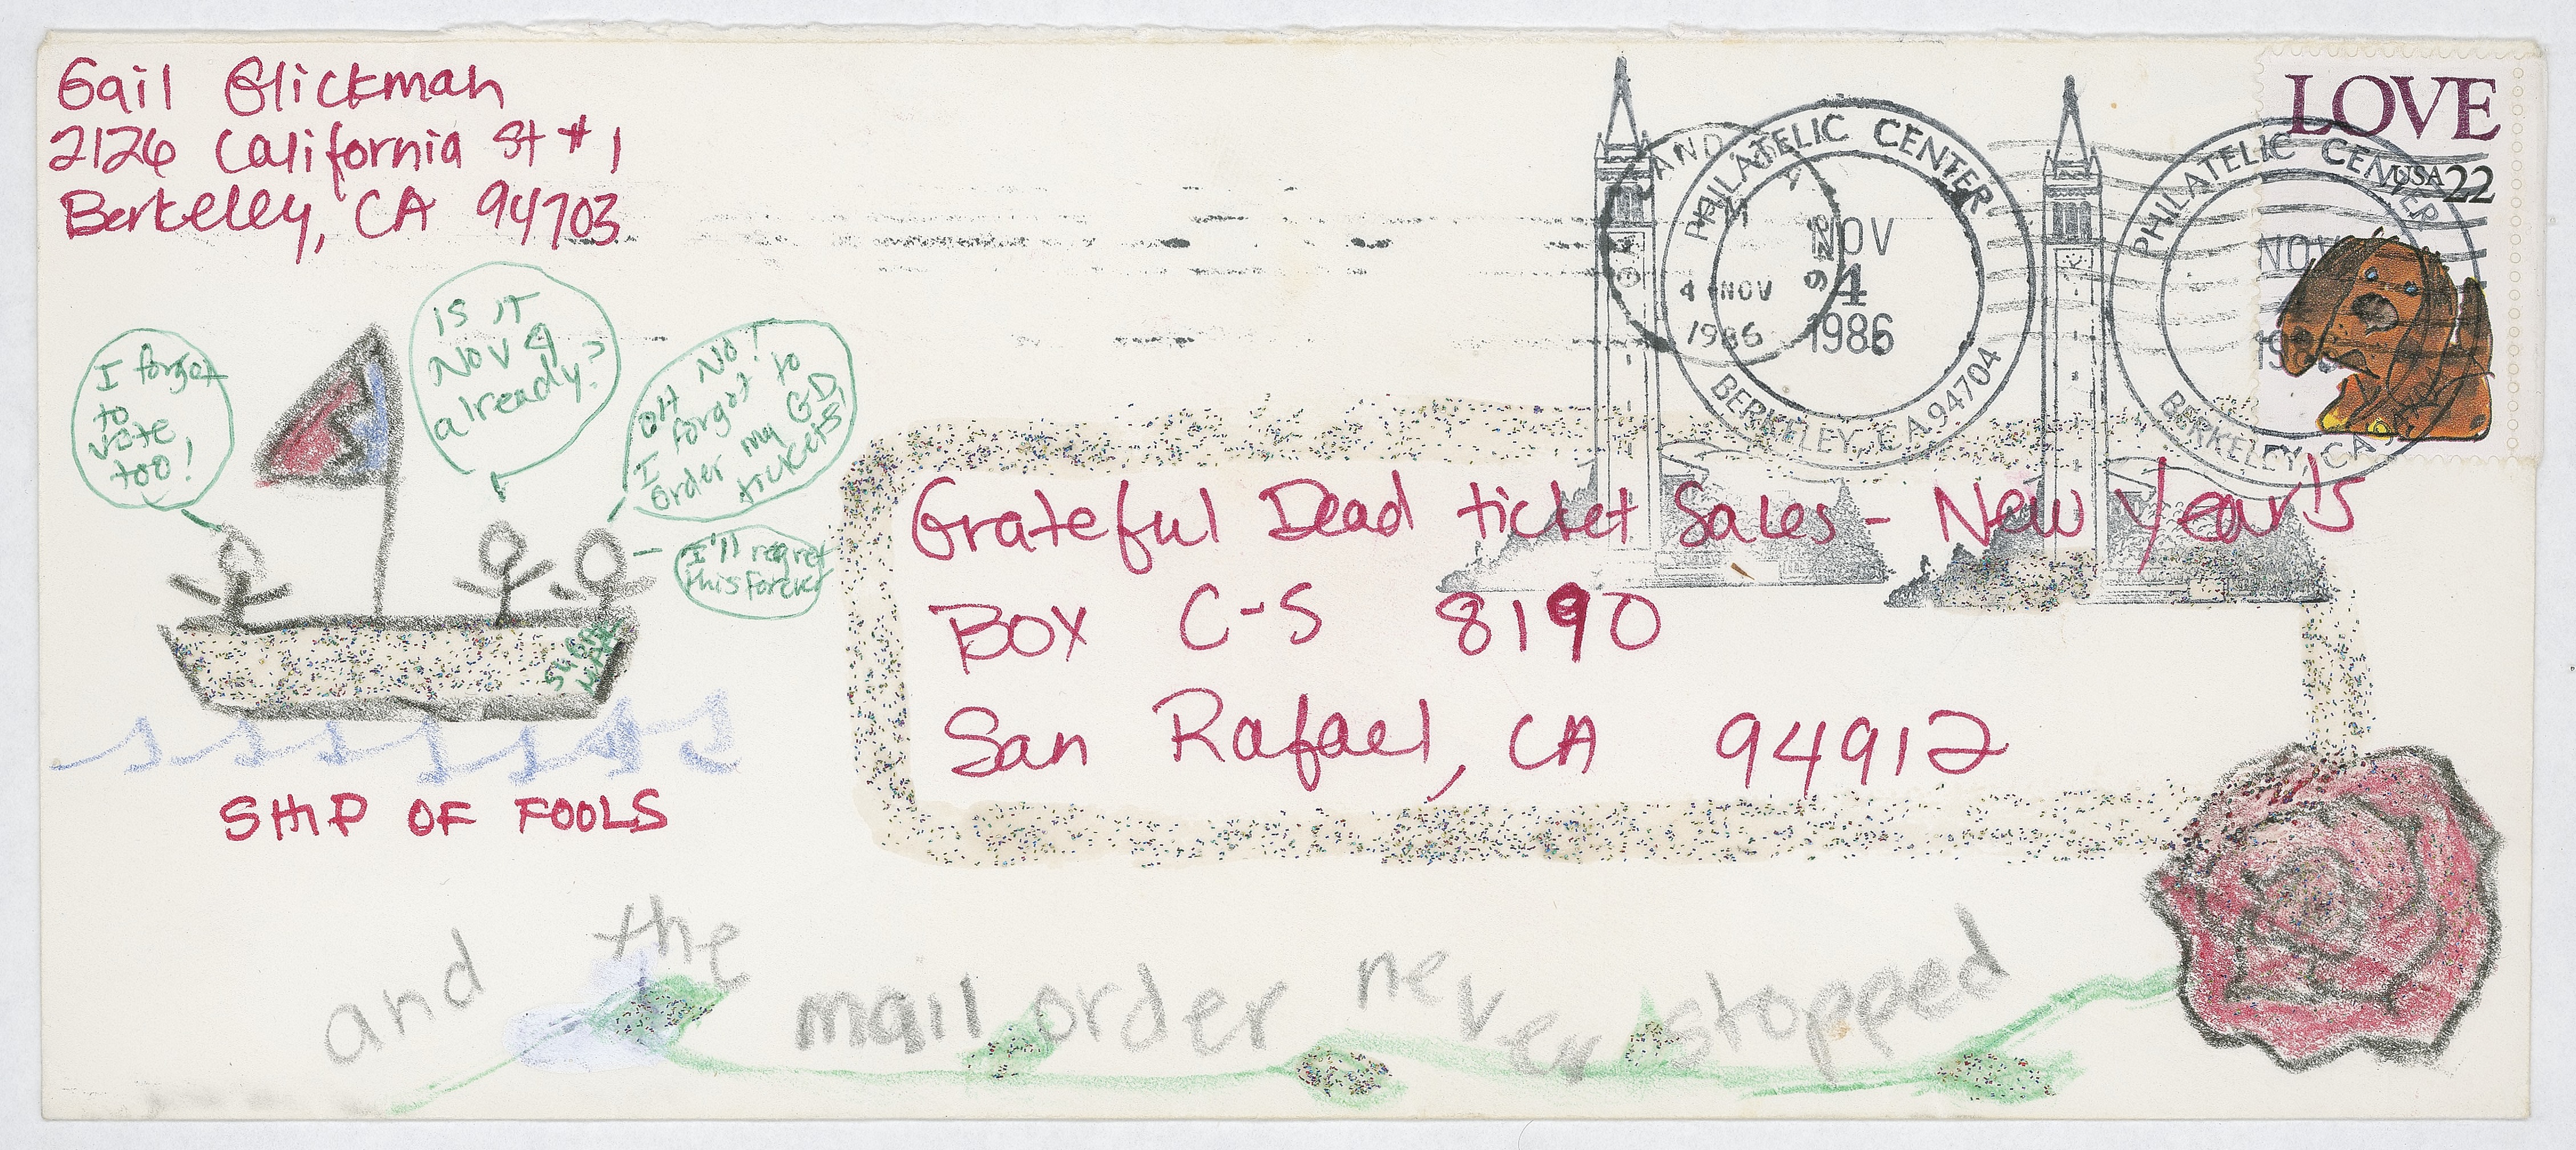 Gail Glickman
2126 California St #1
Berkeley, CA 94703
LOVE
USA 22
PHILATELIC CENTER
NOV
4
1986
BERKELEY, CA 94704
4 NOV
1986
PHILATELIC CENTER
NOV
BERKELEY, CA
I forgot
to
vote,
too!
IS IT
NOV 4
already?
OH NO!
I forgot to
order my GD
tickets!
I'll regret
this forever
Grateful Dead ticket Sales - New Year's
BOX C-S 8190
San Rafael, CA 94912
SHIP OF FOOLS
and the mail order never stopped